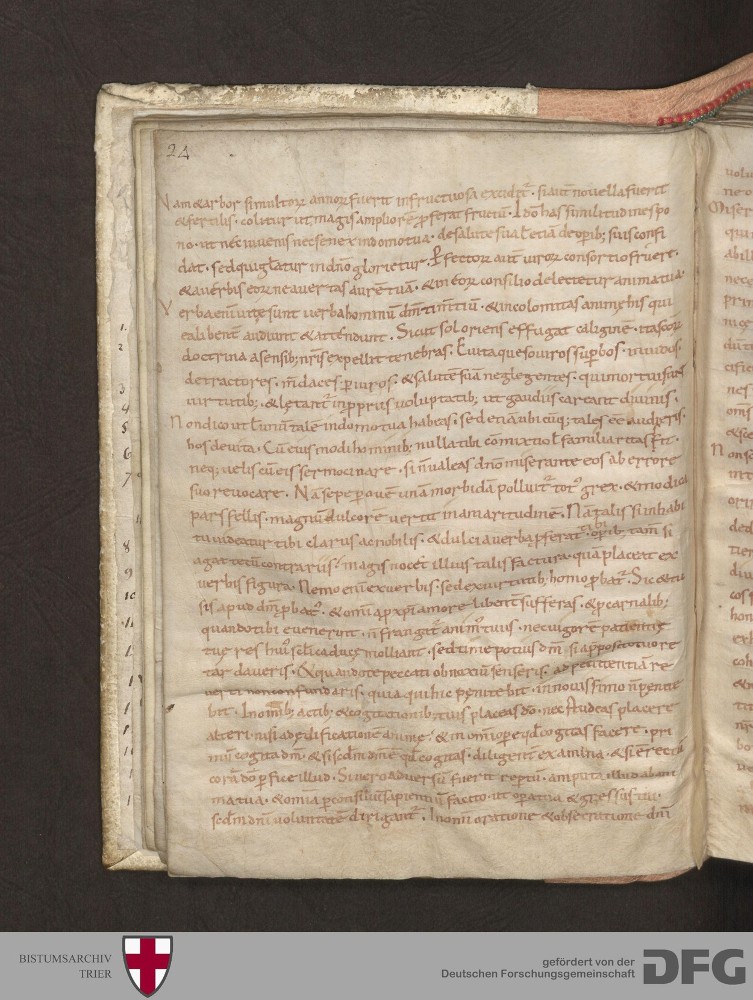 24
Nam & arbor si multor annor fuerit infructuosa excidet̄. si aut̄ novella fuerit
& fertilis. colitur ut magis ampliorē p̄ferat fructū. Ido has similitudines po
no. ut nec iuvenis nec senex in domo tua. de salute sua l̄ etiā de operib; suis confi
dat. sed qui gl̄atur in dn̄o glorietur. Perfector aut viror consortio fruere.
& a verbis eor ne avertas aurē tuā. & in eor consilio delectetur anima tua.
Verba enī vitę sunt verba hominū dm̄ timentiū. & incolomitas animę his qui
ea libent̄ audiunt & attendunt. Sicut sol oriens effugat caliginē. ita scor
doctrina a sensib; nr̄is expellit tenebras. Evita quęso viros supbos. invidos.
detractores. mdaces. piuros. & salutē suā neglegentes. qui mortui sunt
virtutib;. & lętant̄ in p̄priis voluptatib; ut gaudiis careant divinis.
Non dico ut l̄ unū talē in domo tua habeas. sed etiā ubicūq; tales eē audieris.
hos devita. Cū eius modi hominib; nulla tibi cōmixtio l̄ familiaritas sit.
neq; velis cū eis sermocinare. si n̄ valeas dn̄o miserante eos ab errore
suo revocare. Nā sepe p ovē unā morbidā polluit̄ tot' grex. & modica
pars fellis. magnū dulcorē vertit in amaritudinē. Nā talis si in habi
tu videatur tibi clarus ac nobilis. & dulcia verba p̄ferat tibi. opib; tam̄ si
agat totū contrariis. magis nocet illius talis factura. quā placeat ex
verbis figura. Nemo enī ex verbis. sed ex virtutib; homo p̄bat̄. Sic & tu
sis apud dm̄ p̄bat'. & omīa p xp̄i amore libent̄ sufferas. & p carnalib;
quando tibi evenerint. n̄ frangat̄ anim' tuus. nec vigorē patientię
tuę res hui' scl̄i caducę molliant. sed time potius dm̄. si apposito tuo re
tardaveris. & quando te peccati obnoxiū senseris. ad penitentiā re
verti non confundaris. quia qui hic penitebit. in novissimo n̄ penite
bit. In omīb; actib; & cogitationib; tuis placeas dō. nec studeas placere
alteri. nisi ad edificationē animę. & in omī ope qd̄ cogitas facere. pri
mū cogita dm̄. & si scdm̄ dm̄ ē qd̄ cogitas. diligent̄ examina. & si ē rectū
corā dō pfice illud. Si vero adversū fuerit reptū. amputa illud ab ani
ma tua. & omīa p consiliū sapientiū facito. ut opa tua & gressus tui
scdm̄ dn̄i voluntatē dirigant̄. In omī oratione & obsecratione dn̄i
BISTUMSARCHIV
TRIER
gefördert von der
Deutschen Forschungsgemeinschaft
DFG